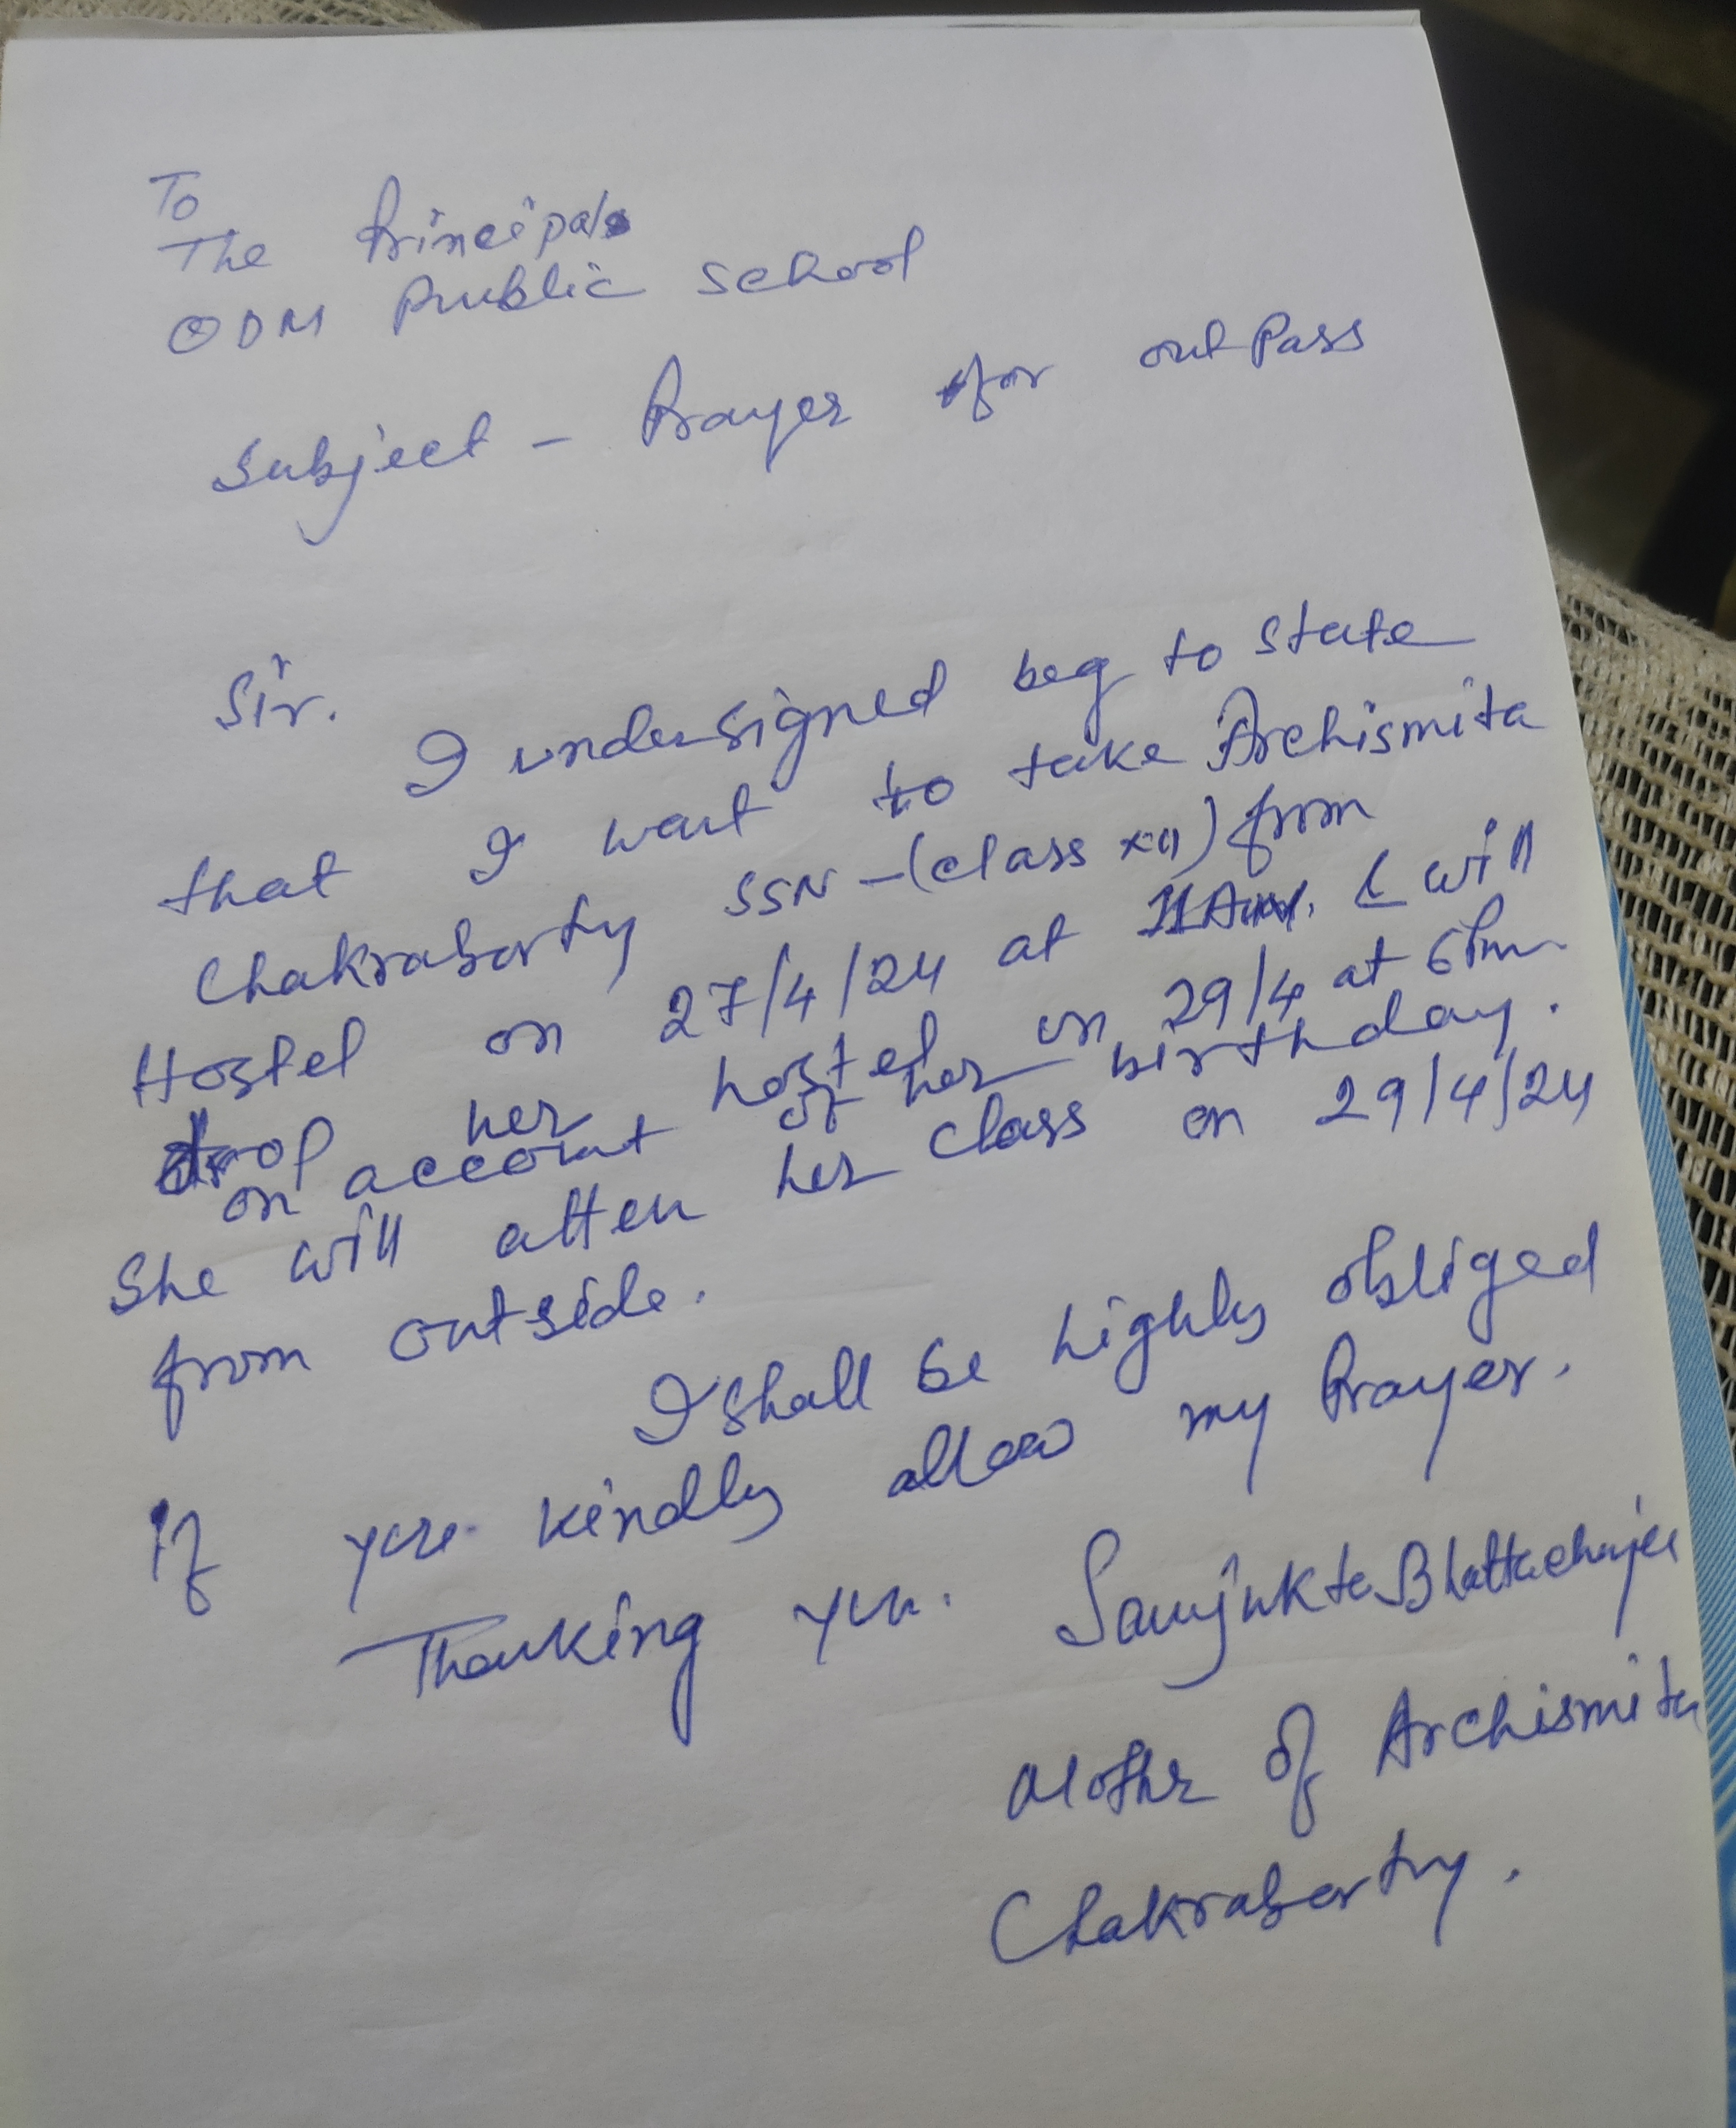 To
The Principal
ODM Public School
Subject - Prayer for outPass
Sir.
I undersigned beg to state
that I want to take Archismita
Chakraborty SSN - (class XII) from
Hostel on 27/4/24 at 11 Am. & will
drop her hostel on 29/4 at 6Pm.
on account of her birthday.
She will atten her class on 29/4/24
from outside.
I shall be highly obliged
If you kindly allow my Prayer.
Thanking you.
Sanjukta Bhattacharjee
Mother of Archismita
Chakraborty.